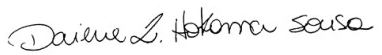 Daiene L. Hokama Sousa